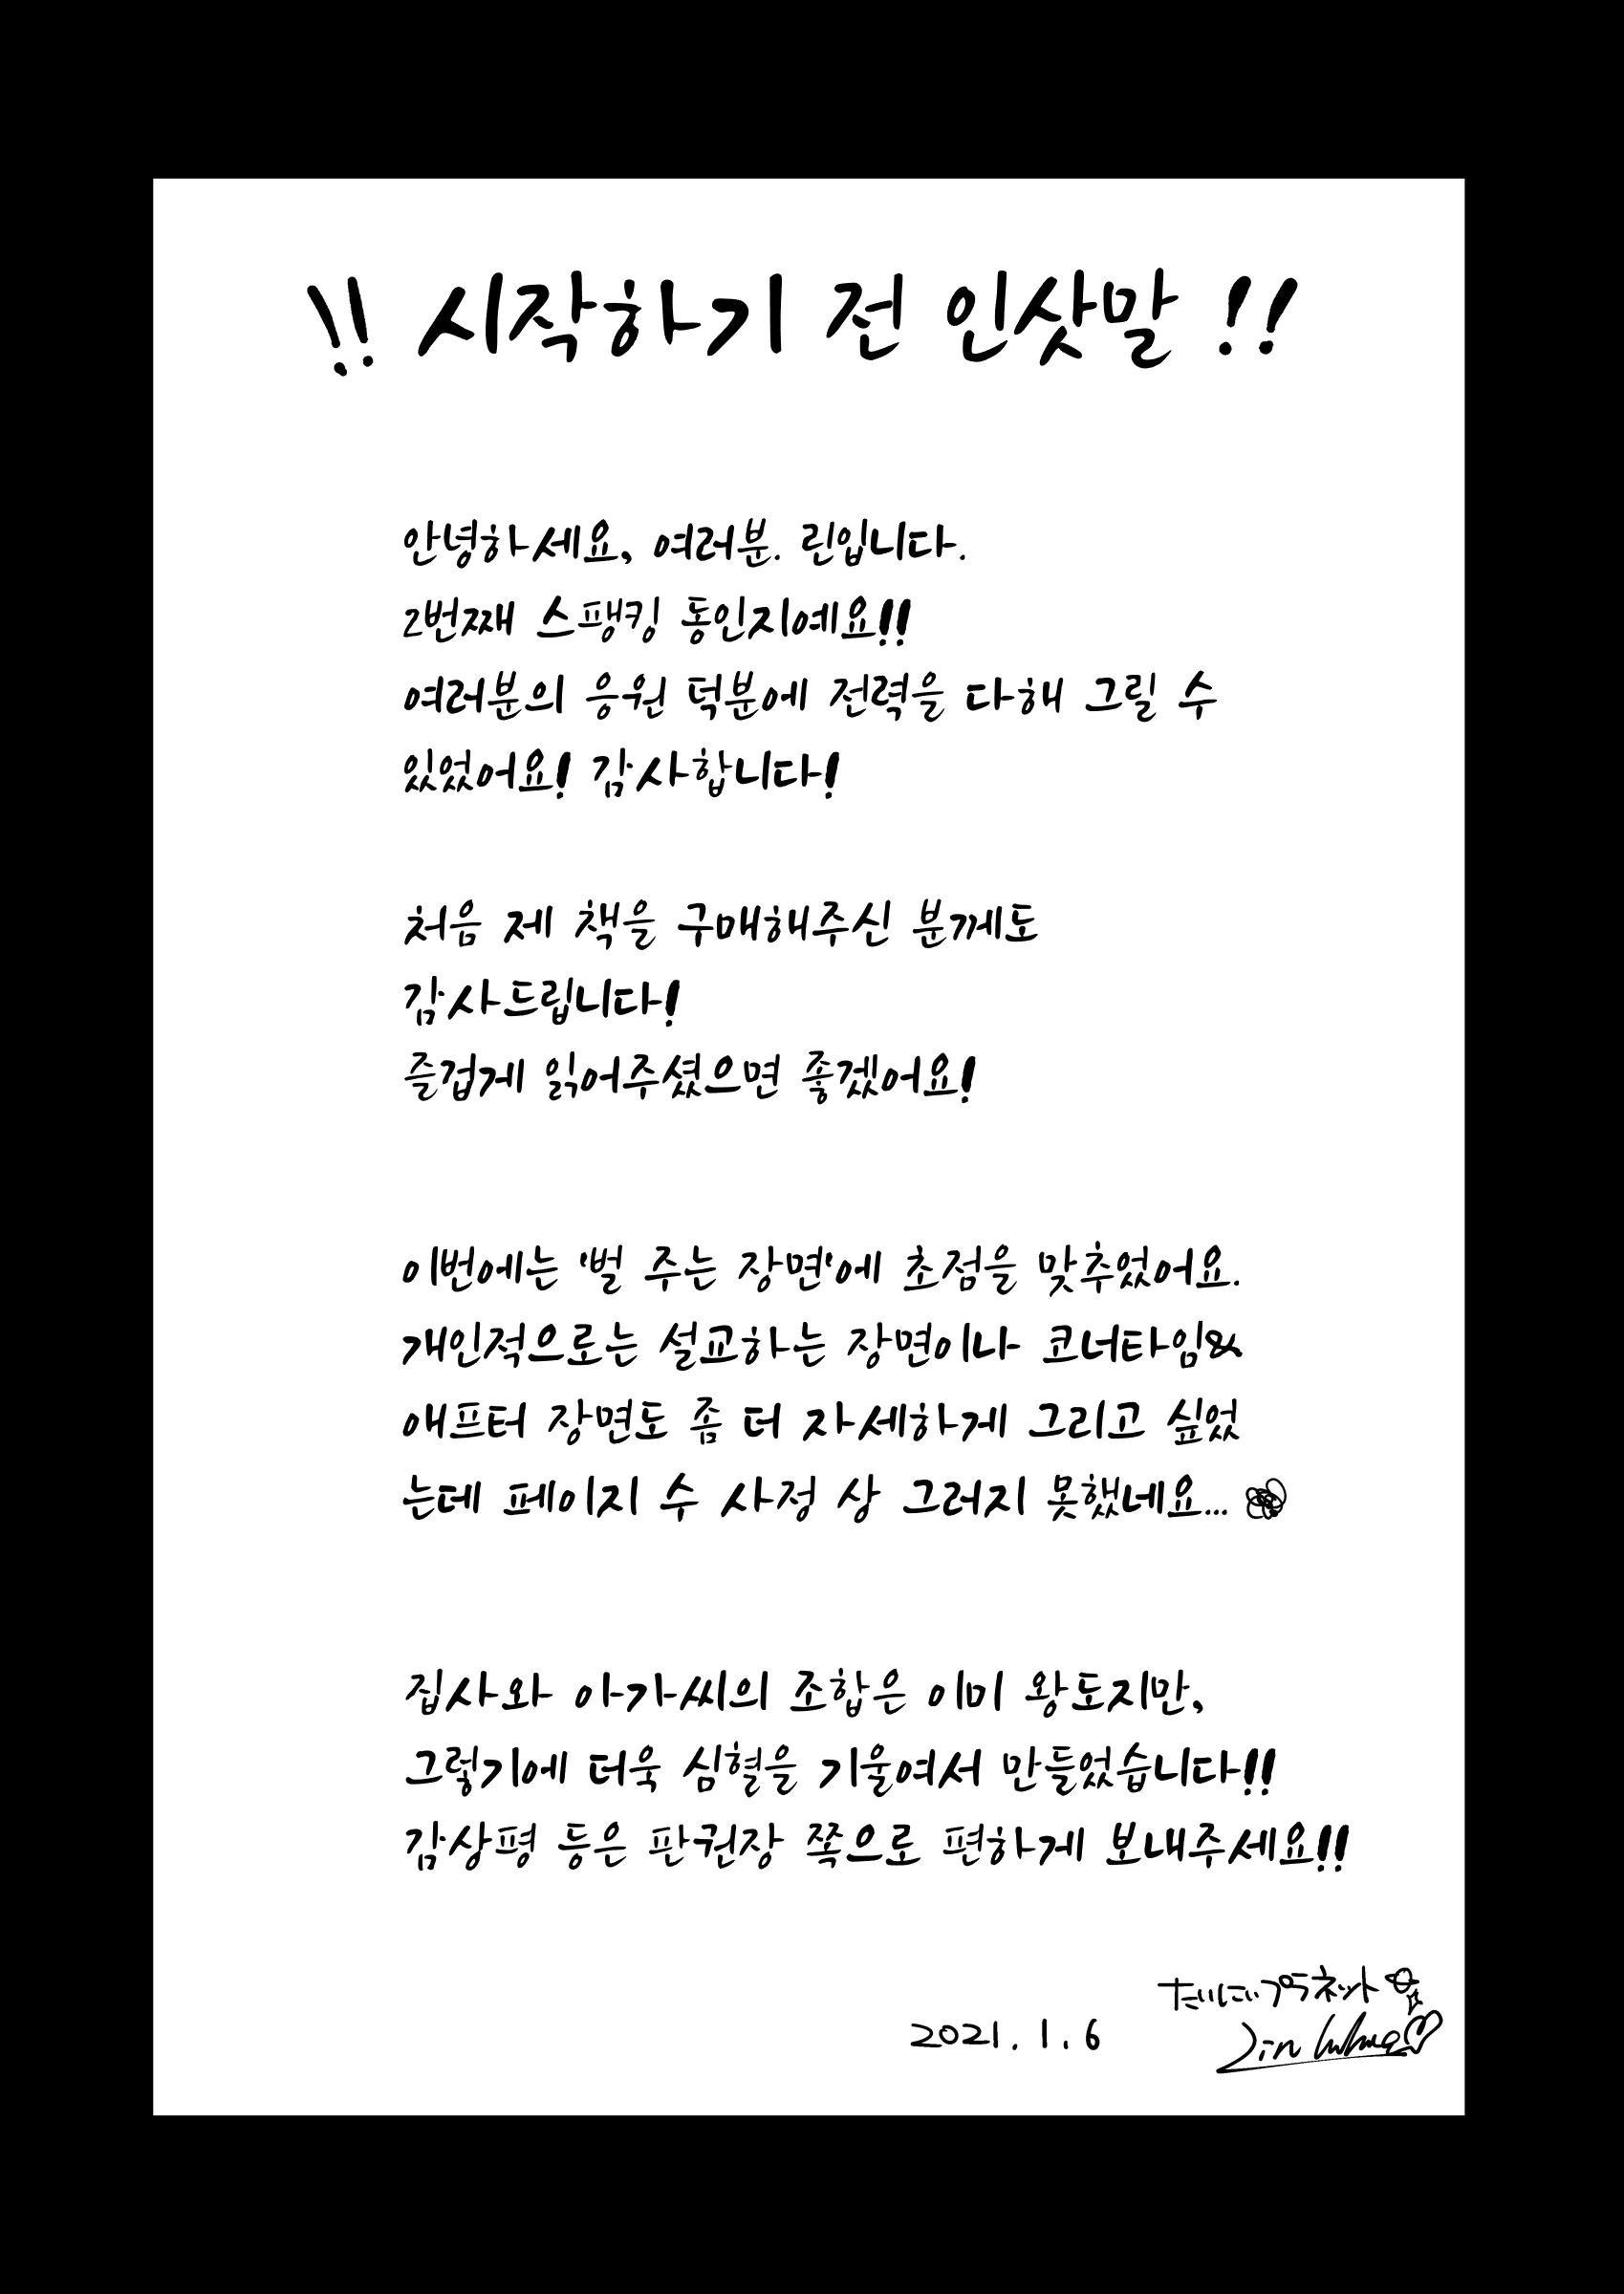 !! 시작하기 전 인삿말 !!
안녕하세요, 여러분. 린입니다.
2번째 스팽킹 동인지예요!!
여러분의 응원 덕분에 전력을 다해 그릴 수
있었어요! 감사합니다!
처음 제 책을 구매해주신 분께도
감사드립니다!
즐겁게 읽어주셨으면 좋겠어요!
이번에는 '벌 주는 장면'에 초점을 맞추었어요.
개인적으로는 설교하는 장면이나 코너타임&
애프터 장면도 좀 더 자세하게 그리고 싶었
는데 페이지 수 사정 상 그러지 못했네요...
집사와 아가씨의 조합은 이미 왕도지만,
그렇기에 더욱 심혈을 기울여서 만들었습니다!!
감상평 등은 판권장 쪽으로 편하게 보내주세요!!
だいにプラネット
2021. 1. 6
Lin